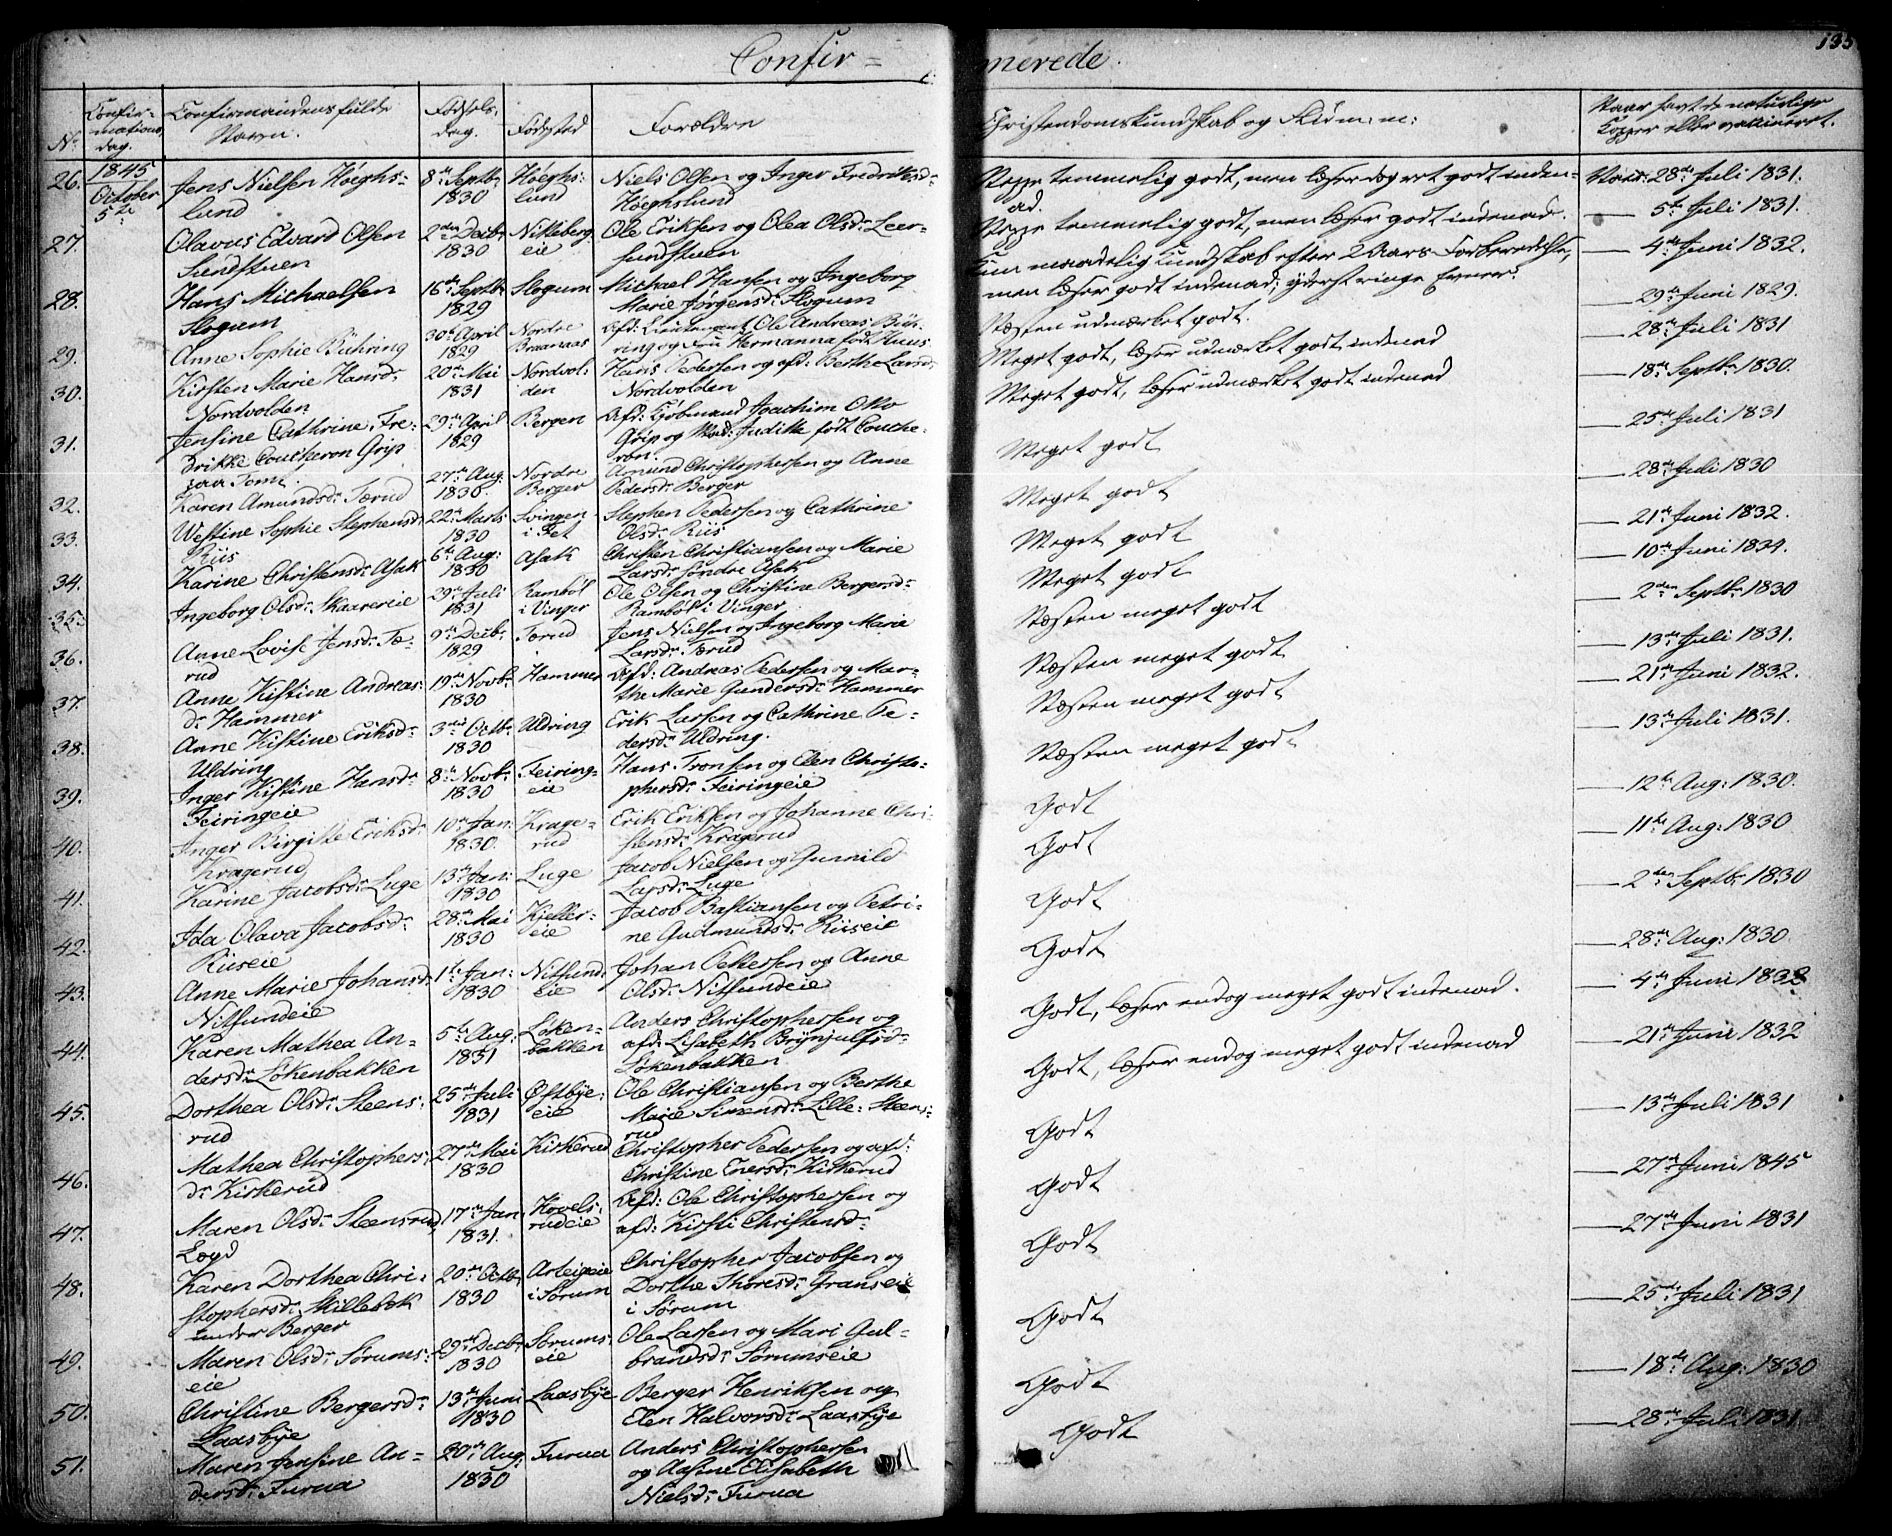 Confir = merede.
135
No.
Confir-
mations
dag.
Confirmandens fulde
Navn.
Fødsels
dag.
Fødested
Forældre
Christendomskundskab og Flid m: m:
Naar havt de naturlige
Kopper eller vaccineret.
1845
October
5te
26. Jens Nielsen Höeghs- 8de Septbr Höeghs- Niels Olsen og Inger Fredriksd:
lund 1830 lund Höeghslund
temmelig godt, men læser godt inden-
ad.
Vacc: 28de Juli 1831.
27. Olavus Edvard Olsen 2den Decbr Nitteberg Ole Eriksen og Olea Olsd: Leer-
Sundstuen 1830 eie sundstuen
temmelig godt, men læser godt indenad.
5te Juli 1831.
28. Hans Michaelsen 16de Septbr Slogum Michael Hansen og Ingeborg
Slogum 1829 Marie Jørgensd: Slogum
Kun maadelig Kundskab efter 2 Aars Forberedelse,
men læser godt indenad; yderst ringe Evner.
4de Juni 1832.
29. Anne Sophie Bühring 30te April Nordre Afd: Lieutenant Ole Andreas Büh-
1829 Braanaas ring og Fru Hermanna født Huus
Næsten udmærket godt.
29de Juni 1829.
30. Kirsten Marie Hansd: 20de Mai Nordvol- Hans Pedersen og afd: Berthe Larsd:
Nordvolden 1831 den Nordvolden
Meget godt, læser udmærket godt indenad
28de Juli 1831
31. Jensine Cathrine Fre- 29de April Bergen Afd: Kjöbmand Joachim Otto
drikke Coucheron Grip 1829 Grip og Mad: Judithe født Couche-
paa Tomt. ron.
Meget godt, læser udmærket godt indenad
18de Septbr 1830.
32. Karen Amundsd: Tærud 27de Aug. Nordre Amund Christophersen og Anne
1830. Berger Pedersd: Berger
Meget godt
25de Juli 1831
33. Westine Sophie Stephensd: 22de Marts Svingen Stephen Pedersen og Cathrine
Riis 1830 i Fet Olsd: Riis
Meget godt
28de Juli 1830
34. Karine Christensd: Asak 6te Aug: Asak Christen Christiansen og Marie
1830 Larsd: Søndre Asak
Meget godt
21de Juni 1832.
35. Ingeborg Olsd: Skaarereie 29de Juli Ramböl Ole Olsen og Christine Bergersd:
1831 i Vinger Ramböl i Vinger
Meget godt
10de Juni 1834.
36. Anne Lovise Jensd: Tæ- 9de Decbr Tærud Jens Nielsen og Ingeborg Marie
rud 1829 Larsd: Tærud
Næsten meget godt
2den Septbr 1830
37. Anne Kistine Andreas- 19de Novbr Hammer Afd: Andreas Pedersen og Mar-
d: Hammer 1830 the Marie Gundersd: Hammer
Næsten meget godt
13de Juli 1831.
38. Anne Kistine Eriksd: 3die Octbr Uldring Erik Larsen og Cathrine Pe-
Uldring 1830 dersd: Uldring.
Næsten meget godt
21de Juni 1832.
39. Inger Kistine Hansd: 8de Novbr Feiring- Hans Tronsen og Elen Christo-
Feiringeie 1830 eie phersd: Feiringeie
Næsten meget godt
13de Juli 1831.
40. Inger Birgitte Eriksd: 10de Jan: Krage- Erik Eriksen og Johanne Chri-
Kragerud 1830. rud stensd: Kragerud
Godt
12te Aug: 1830.
41. Karine Jacobsd: Luge 13de Jan: Luge Jacob Nielsen og Gunnild
1830 Larsd: Luge
Godt
11te Aug: 1830
42. Ida Olava Jacobsd: 28de Mai Kjeller- Jacob Bastiansen og Petri-
Riiseie 1830 eie ne Gudmundsd: Riiseie
Godt
2den Septbr 1830
43. Anne Marie Johansd: 1ste Jan: Nitsund- Johan Pettersen og Anne
Nitsundeie 1830 eie Olsd: Nitsundeie
Godt
28de Aug: 1830
44. Karen Mathea An- 5te Aug: Løken- Anders Christophersen og
dersd: Løkenbakken 1831 bakken afd: Lisabeth Brynjulfsd:
Løkenbakken
Godt, læser endog meget godt indenad.
4de Juni 1832
45. Dorthea Olsd: Steens- 25de Juli Østbye- Ole Christiansen og Berthe
rud 1831 eie Marie Simensd: Lille-Steens-
rud
Godt, læser endog meget godt indenad
21de Juni 1832
46. Mathea Christophers- 27de Mai Kirkerud Christopher Pedersen og afd:
d: Kirkerud 1830 Christine Enersd: Kirkerud
Godt
13de Juli 1831
47. Maren Olsd: Steensrud, 17de Jan: Hovels- Afd: Ole Christophersen og
Lægd 1831. rudeie afd: Kirsti Christensd:
Godt
27de Juni 1845
48. Karen Dorthea Chri- 20de Octbr Arteigeie Christopher Jacobsen og
stophersd: Skillebek 1830 i Sørum Dorthe Thoresd: Granseie
under Berger i Sørum
Godt
27de Juni 1831
49. Maren Olsd: Sørums- 29de Decbr Sørums- Ole Larsen og Mari Gul-
eie 1830 eie brandsd: Sørumseie
Godt
25de Juli 1831
50. Christine Bergersd: 13de Juni Laasbye Berger Henriksen og
Laasbye 1830 Elen Halvorsd: Laasbye
Godt
18de Aug: 1830
51. Maren Jensine An- 30te Aug: Furua Anders Christophersen
dersd: Furua 1830 og Aasine Elisabeth
Nielsd: Furua
Godt
28de Juli 1831